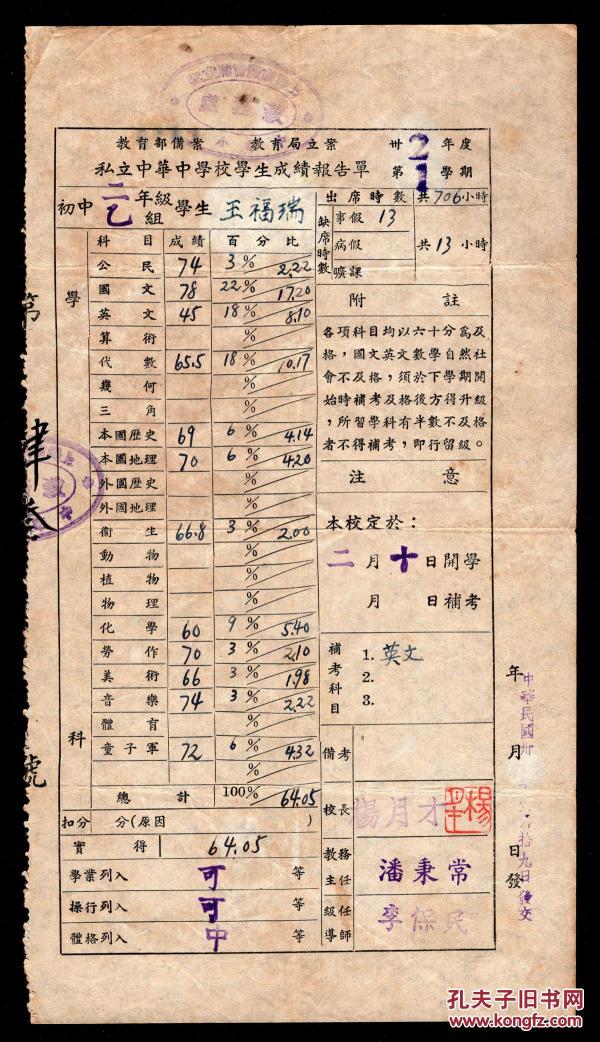 教務處
教育部備案 教育局立案
私立中華中學校學生成績報告單
卅2年度
第1學期
初中二年級乙組學生 王福瑞
出席時數 共706小時
缺席時數
事假 13
病假
曠課
共13小時
科目 成績 百分比
學科
公民 74 3% 2.22
國文 78 22% 17.20
英文 45 18% 8.10
算術 %
代數 65.5 18% 10.17
幾何 %
三角 %
本國歷史 69 6% 4.14
本國地理 70 6% 4.20
外國歷史 %
外國地理 %
衛生 66.8 3% 2.00
動物 %
植物 %
物理 %
化學 60 9% 5.40
勞作 70 3% 2.10
美術 66 3% 1.98
音樂 74 3% 2.22
體育 %
童子軍 72 6% 4.32
總計 100% 64.05
扣分 分(原因 )
實得 64.05
學業列入 可 等
操行列入 可 等
體格列入 中 等
附註
各項科目均以六十分為及
格,國文英文數學自然社
會不及格,須於下學期開
始時補考及格方得升級
,所習學科有半數不及格
者不得補考,即行留級。
注意
本校定於:
二月十日開學
月 日補考
補考科目
1. 英文
2.
3.
備考
校長 楊月才
教務主任 潘秉常
級任導師 李保民
年 月 日發
中華民國卅
拾九日發交
第
肆
號
孔夫子旧书网
www.kongfz.com